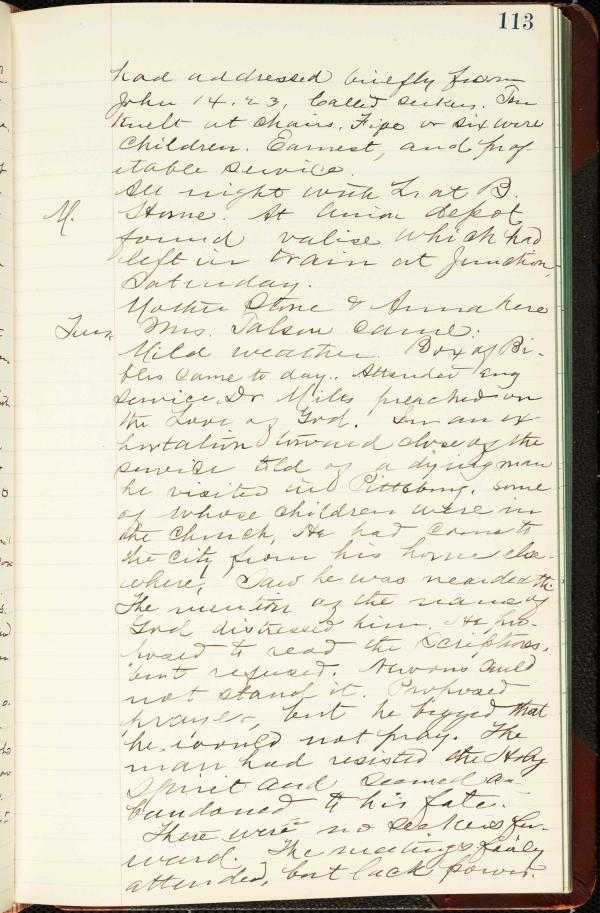 113
had addressed briefly from
John 14.23. Called seekers. Ten
knelt at chairs. Five or six were
children. Earnest, and prof
itable service.
All night with L. at B.
M. Stone. At Union depot
found valise which had
left in train at Junction,
Saturday.
Mother Stone & Anna here
Tues. Mrs. came.
Mild weather. Box of Bi-
bles came to day. Attended Eng
service. Dr Mills preached on
the Love of God. In an ex
hortation toward close of the
service told of a dying man
he visited in Pittsburg, some
of whose children were in
the Church, He had come to
the city from his home else-
where, Saw he was near death.
The mention of the name of
God distressed him. He pro-
posed to read the Scriptures,
but refused. Nervous could
not stand it. Proposed
prayer, but he begged that
he would not pray. The
man had resisted the Holy
Spirit and seemed a-
bandoned to his fate.
There were no seekers for-
ward. The meetings fairly
attended, but lack power.